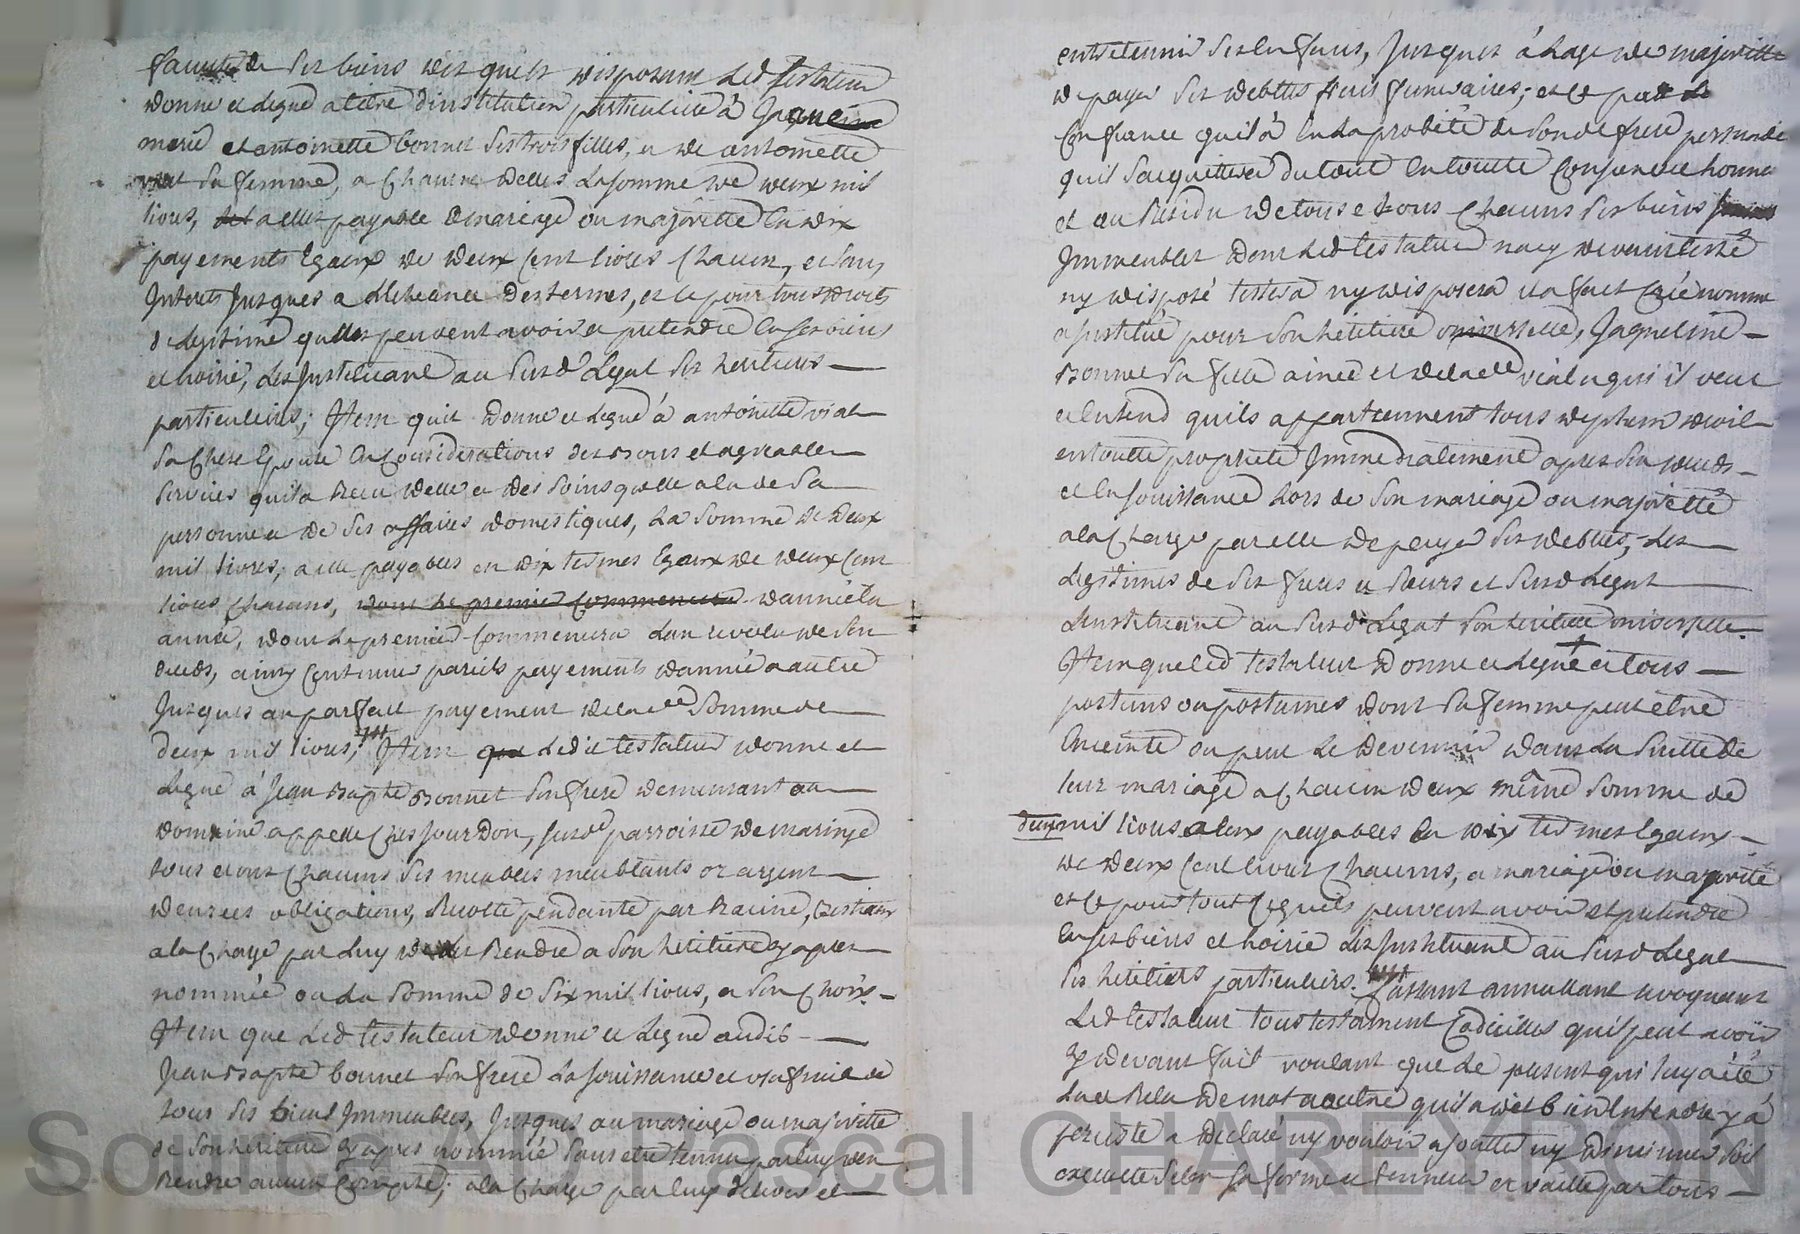 de ses biens desquels disposant led testateur
donne et legue a titre d'institution particuliere à Jaqueline
marie et antoinette bonnet ses trois filles, et de antoinette
vial sa femme, a chacune delles la somme de deux mil
livres, a elles payable a mariage ou majoritté en dix
payements Egaux de deux Cent livres Chacun, et sans
Interets Jusques a lecheance des termes, et ce pour tous droits
de legitime quelles peuvent avoir et pretendre en ses biens
et hoirie, les Instituant au susd Legat ses heritieres
particulieres; Item quil donne et legue à antoinette vial
sa Chere Epouse En Considerations des bons et agreables
services quil a Receu delle et des soins quelle a eu de sa
personne et de ses affaires domestiques, la somme de deux
mil livres, a elle payables en dix termes Egaux de deux Cent
livres Chacuns, dont le premier Commencera dannée En
année, dont le premier Commencera lan revolu de son
deceds, ainsy Continuer pareils payements dannée a autre
Jusques au parfait payement de lad somme de
deux mil livres, Item que ledit testateur donne et
Legue à Jean Bapte Bonnet son frere demeurant au
domaine appelle Ches Jourdon, susd parroisse de maringe
tous et uns Chacuns ses meubles meublants or argent
denrees obligations, Recolte pendante par Racine, Bestiaux
a la Charge par luy de les Rendre a son heritiere cy apres
nommée ou la somme de six mil livres, a son Choix.
Item que Led testateur donne et Legue audit
Jean Bapte bonnet son frere La Jouissance et usufruit de
tous ses biens Immeubles, Jusques au mariage ou majoritté
de son heritiere cy apres nommée sans etre tenu par luy den
Rendre aucun Compte; a la Charge par luy delever et
entretennir ses Enfans, Jusques à Lage de majoritté
de payer ses debttes frais funeraires; et ce par la
Confiance quil à En la probité de sond frere persuadé
quil sacquittera du tout En toutte Consience honneur
et au Residu de tous et uns Chacuns ses biens
Immeubles dont Led testateur na cy devant testé
ny disposé testera ny disposera il a fait Créé nomme
et Institue pour son heritiere universelle, Jaqueline
Bonnet sa fille ainée et de lad vial a qui il veut
et Entend quils appartiennent tous de plein droit
en toutte proprieté Immediatement apres son deceds
et En Jouissance lors de son mariage ou majoritté
a la Charge par elle de payer ses debtes, les
Legitimes de ses freres et sœurs et susd legat
Linstituant au susd Legat son heritiere universelle.
Item que led testateur donne et legue a tous
postums ou postumes dont sa femme peut etre
Enceinte ou peut le devennir dans la suitte de
leur mariage a Chacun deux même somme de
deux mil livres a eux payables En dix termes Egaux
de deux Cent livres Chacuns, a mariage ou majorité
et ce pour tout Cequils peuvent avoir et pretendre
En ses biens et hoirie les Instituant au susd Legat
ses heritiers particuliers. Cassant annullant revoquant
Led testateur tous testament Codicilles quil peut avoir
cy devant fait voulant que le present qui luy a été
Lu et Relu de mot a autre quil a dit bien Entendre y à
persisté a declaré ny vouloir ajoutter ny diminuer soit
executté selon sa forme et tenneur et vaille par tous
Source AD Pascal CHAREYRON